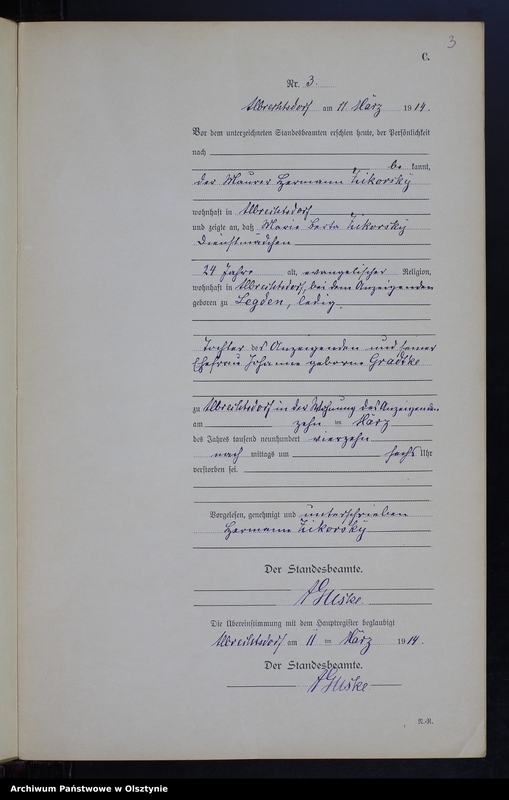 3
C.
Nr. 3.
Albrechtsdorf am 11 März 1914.
Vor dem unterzeichneten Standesbeamten erschien heute, der Persönlichkeit
nach
be kannt,
der Maurer Hermann Zikorsky
wohnhaft in Albrechtsdorf
und zeigte an, daß Marie Berta Zikorsky
Dienstmädchen
24 Jahre alt, evangelischer Religion,
wohnhaft in Albrechtsdorf, bei dem Anzeigenden
geboren zu Legden, ledig
Tochter des Anzeigenden und seiner
Ehefrau Johanne geborne Gradtke
zu Albrechtsdorf in der Wohnung des Anzeigenden
am zehn im März
des Jahres tausend neunhundert vierzehn
nach mittags um sechs Uhr
verstorben sei.
Vorgelesen, genehmigt und unterschrieben
Hermann Zikorsky
Der Standesbeamte.
Die Übereinstimmung mit dem Hauptregister beglaubigt
Albrechtsdorf am 11 im März 1914.
Der Standesbeamte.
N.-R.
Archiwum Państwowe w Olsztynie